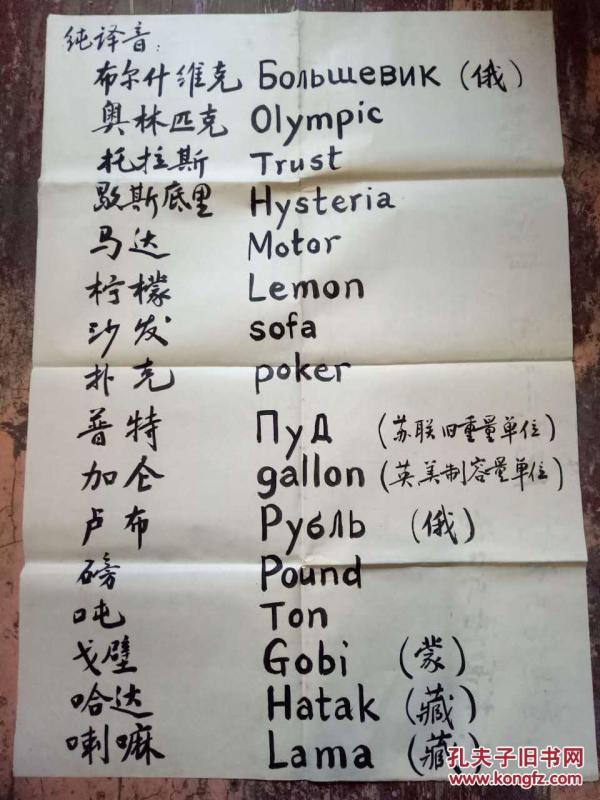 纯译音：
布尔什维克 Большевик （俄）
奥林匹克 Olympic
托拉斯 Trust
歇斯底里 Hysteria
马达 Motor
柠檬 Lemon
沙发 sofa
扑克 poker
普特 Пуд （苏联旧重量单位）
加仑 gallon （英美制容量单位）
卢布 Рубль （俄）
磅 Pound
吨 Ton
戈壁 Gobi （蒙）
哈达 Hatak （藏）
喇嘛 Lama （藏）
孔夫子旧书网
www.kongfz.com